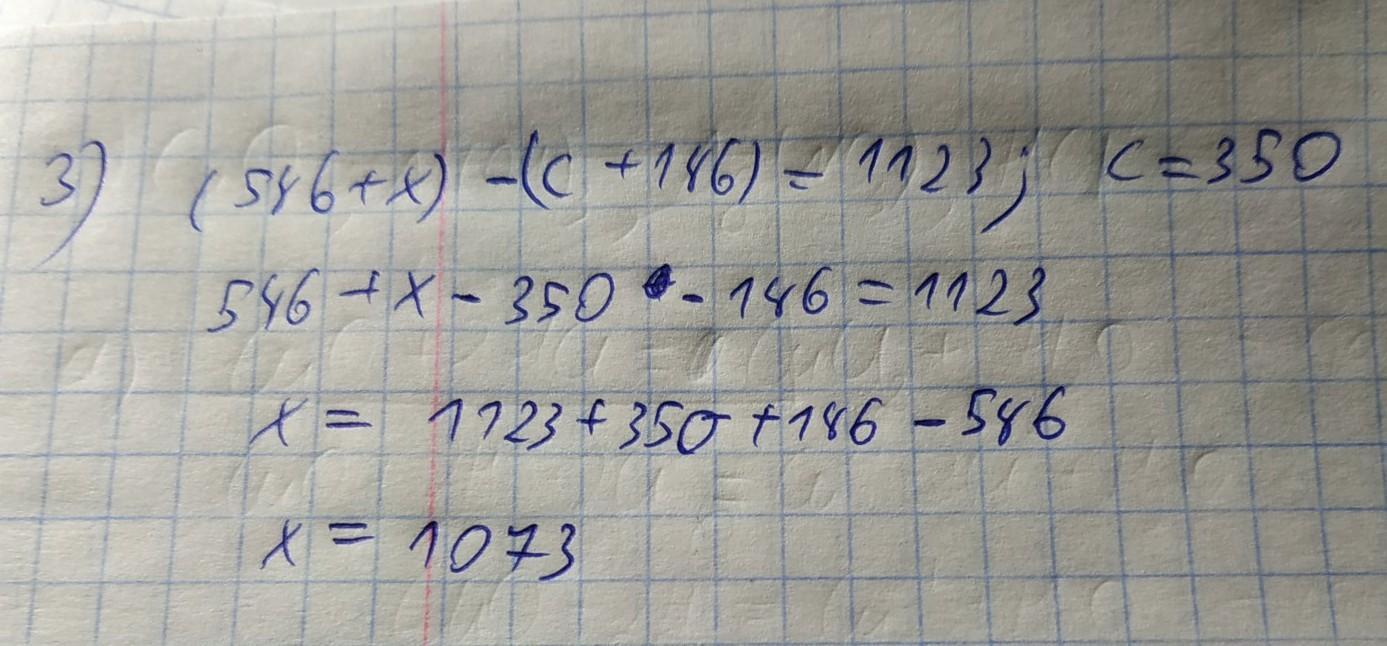 3) (546+x) -(c +146) = 1123; c=350
546 +x - 350 - 146 = 1123
x = 1123+350 +146 - 546
x = 1073